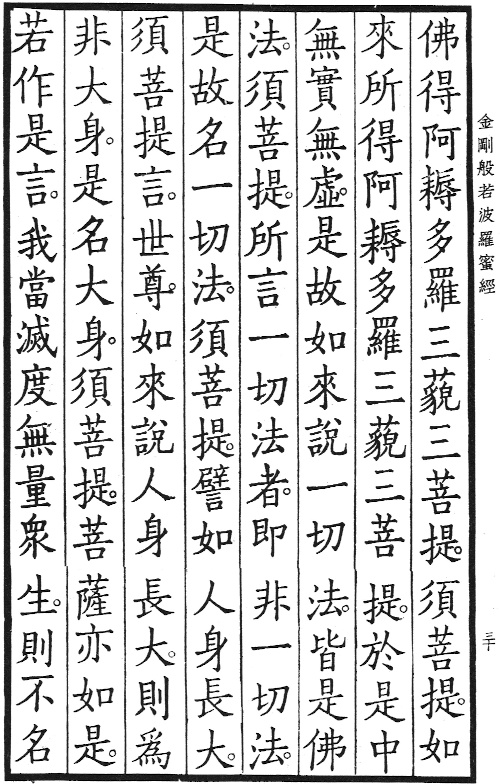 金剛般若波羅蜜經
三十
佛得阿耨多羅三藐三菩提。須菩提。如
來所得阿耨多羅三藐三菩提。於是中
無實無虛。是故如來說一切法。皆是佛
法。須菩提。所言一切法者。即非一切法。
是故名一切法。須菩提。譬如人身長大。
須菩提言。世尊。如來說人身長大。則爲
非大身。是名大身。須菩提。菩薩亦如是。
若作是言。我當滅度無量衆生。則不名